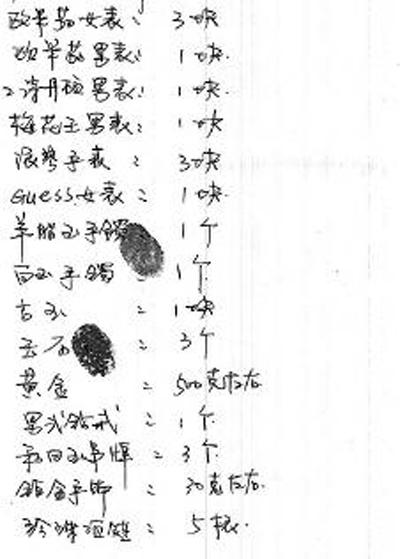 欧米茄女表: 3块
欧米茄男表: 1块.
江诗丹顿男表: 1块
梅花王男表: 1块
浪琴手表: 3块
Guess女表: 1块
羊脂玉手镯 1个
白玉手镯 1个
古玉: 1块
玉石: 3个
黄金: 500克左右
男式钻戒: 1个
和田玉吊牌: 3个
铂金手饰: 30克左右.
珍珠项链: 5根.